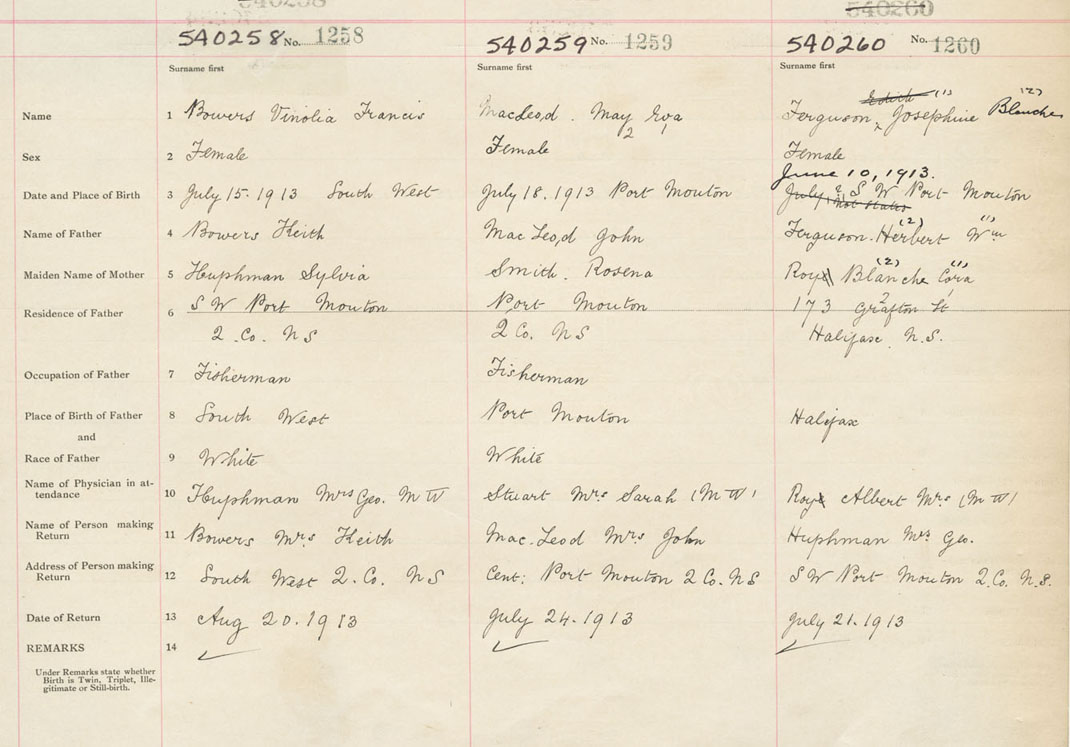 540258 540260
540258 No. 1258 540259 No. 1259 540260 No. 1260
Surname first Surname first Surname first
Edith (1) (2)
Name 1 Bowers Vinolia Francis MacLeod. May Eva Ferguson, Josephine Blanche
2 1
Sex 2 Female Female Female
June 10, 1913.
Date and Place of Birth 3 July 15. 1913 South West July 18. 1913 Port Mouton July ? S W Port Mouton
Not Stated
(2) (1)
Name of Father 4 Bowers Keith MacLeod John Ferguson. Herbert Wm
(2) (1)
Maiden Name of Mother 5 Huphman Sylvia Smith. Rosena Roy Blanche Cora
Residence of Father 6 S W Port Mouton Port Mouton 173 Grafton St
2
Q. Co. N S Q Co. N S Halifax N.S.
Occupation of Father 7 Fisherman Fisherman
Place of Birth of Father 8 South West Port Mouton Halifax
and
Race of Father 9 White White
Name of Physician in at-
tendance 10 Huphman Mrs Geo. M W Stuart Mrs Sarah (M W) Roy Albert Mrs (M W)
Name of Person making
Return 11 Bowers Mrs Keith Mac.Leod Mrs John Huphman Mrs Geo.
Address of Person making
Return 12 South West Q. Co. N S Cent: Port Mouton Q Co. N S S W Port Mouton Q. Co. N.S.
Date of Return 13 Aug 20. 1913 July 24. 1913 July 21. 1913
REMARKS 14
Under Remarks state whether
Birth is Twin, Triplet, Ille-
gitimate or Still-birth.